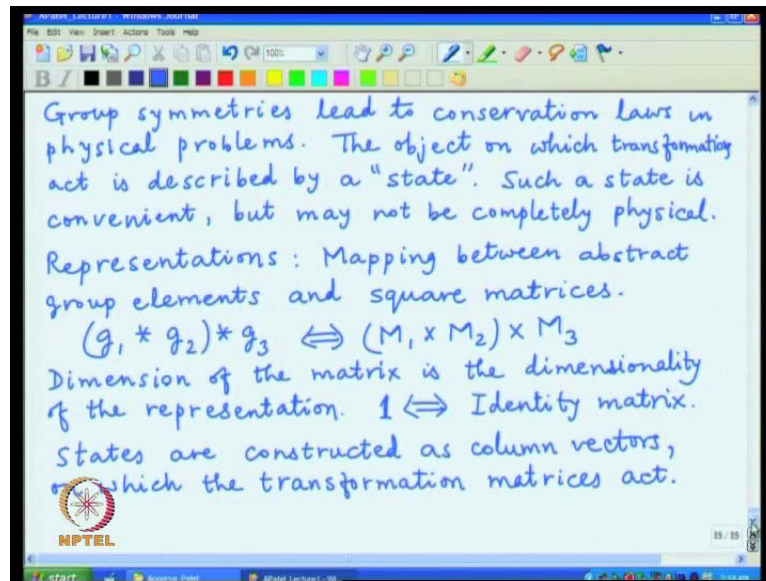 APatel_Lecture1 - Windows Journal
File Edit View Insert Actions Tools Help
100%
B I
Group symmetries lead to conservation laws in
physical problems. The object on which transformations
act is described by a "state". Such a state is
convenient, but may not be completely physical.
Representations : Mapping between abstract
group elements and square matrices.
(g₁ * g₂) * g₃ ⇔ (M₁ × M₂) × M₃
Dimension of the matrix is the dimensionality
of the representation. 1 ⇔ Identity matrix.
States are constructed as column vectors,
on which the transformation matrices act.
NPTEL
89 / 89
start Apoorva_Patel APatel_Lecture1 - Wi...